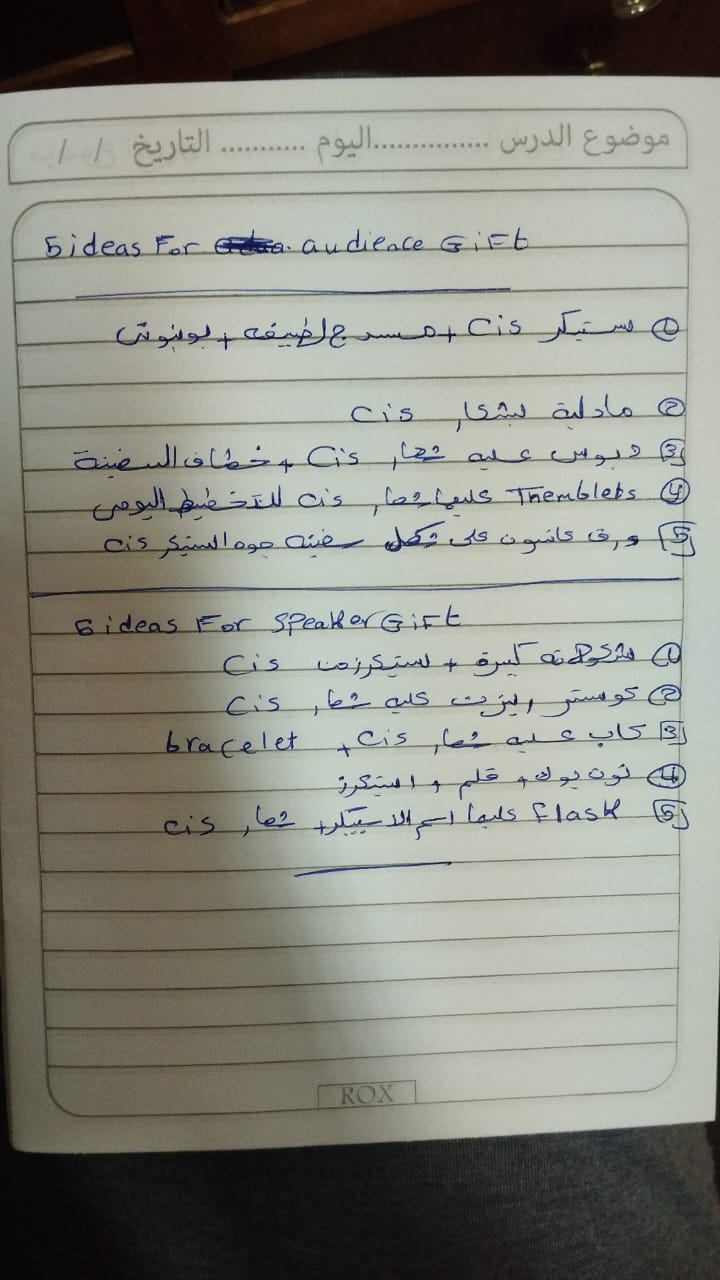 موضوع الدرس ............... اليوم ........... التاريخ / /
5 ideas For audience GiFt
① ستيكر Cis + مسدج لطيفه + بونبوني
② مادلية بشعار Cis
③ دبوس عليه شعار Cis + خطاف السفينة
④ Themblets عليها شعار Cis للتخطيط اليومي
⑤ ورق كانسون على شكل سفينه جوه الستيكر Cis
5 ideas For SPeaker GiFt
① شكولاته كبيرة + ستيكرز من Cis
② كوستر ريزن عليه شعار Cis
③ كاب عليه شعار Cis + bracelet
④ نوت بوك + قلم + استيكرز
⑤ flask عليها اسم الاسبيكر + شعار Cis
ROX